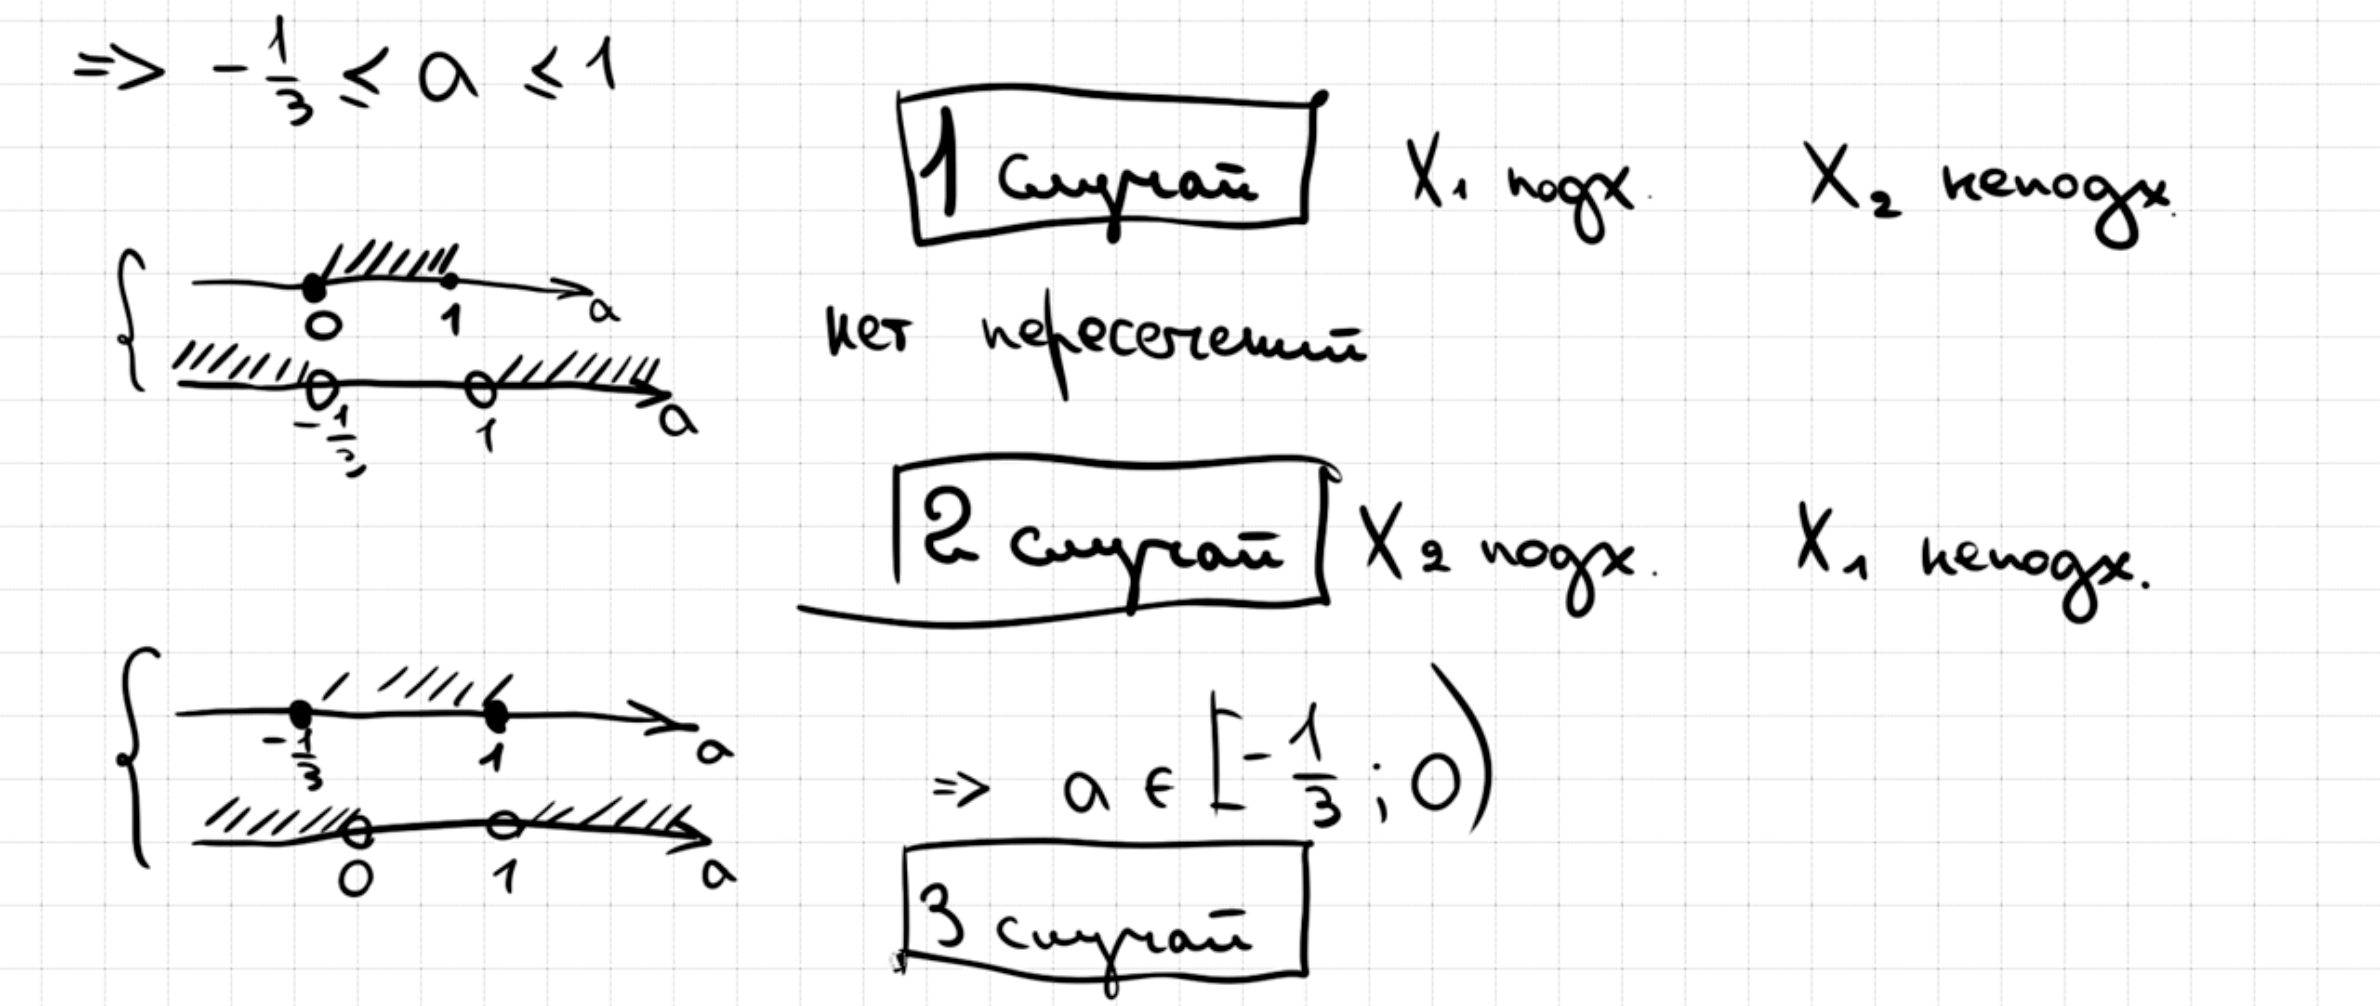 => -1/3 ≤ a ≤ 1
1 случай X₁ подх. X₂ неподх.
0 1 a
нет пересечений
-1/3 1 a
2 случай X₂ подх. X₁ неподх.
-1/3 1 a
=> a ∈ [-1/3; 0)
0 1 a
3 случай